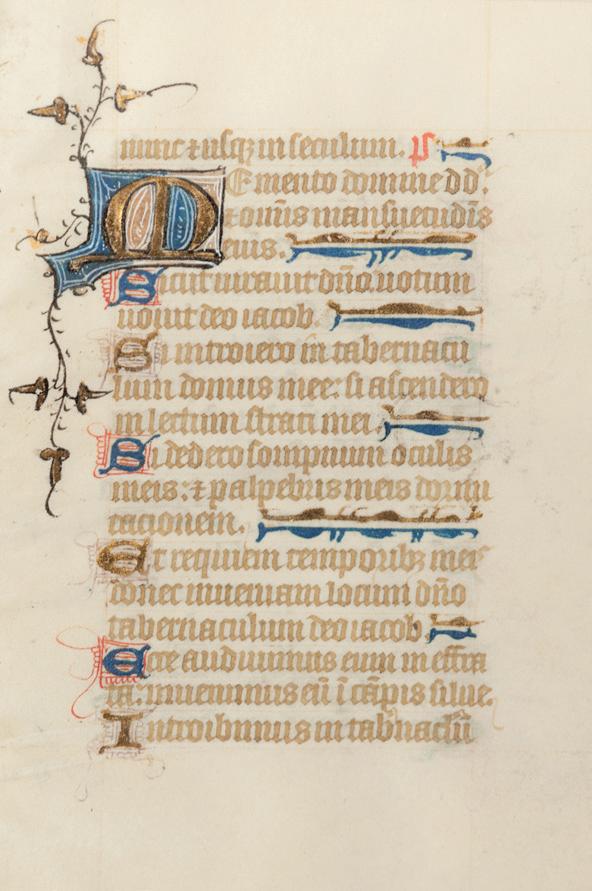 nunc ⁊ usqꝫ in seculum. ps
MEmento domine dd.
⁊ om̄is mansuetudis
eius.
Sicut iurauit dño uotum
uouit deo iacob.
Si introiero in tabernacu
lum domus mee: si ascendero
in lectum strati mei.
Si dedero sompnum oculis
meis: ⁊ palpebris meis dormi
tacionem.
Et requiem temporibꝫ meis
donec inueniam locum dño
tabernaculum deo iacob.
Ecce audiuimus eum in effra
ta: inuenimus eū ī cāpis silue.
Introibimus in tab̄nac̄lm̄